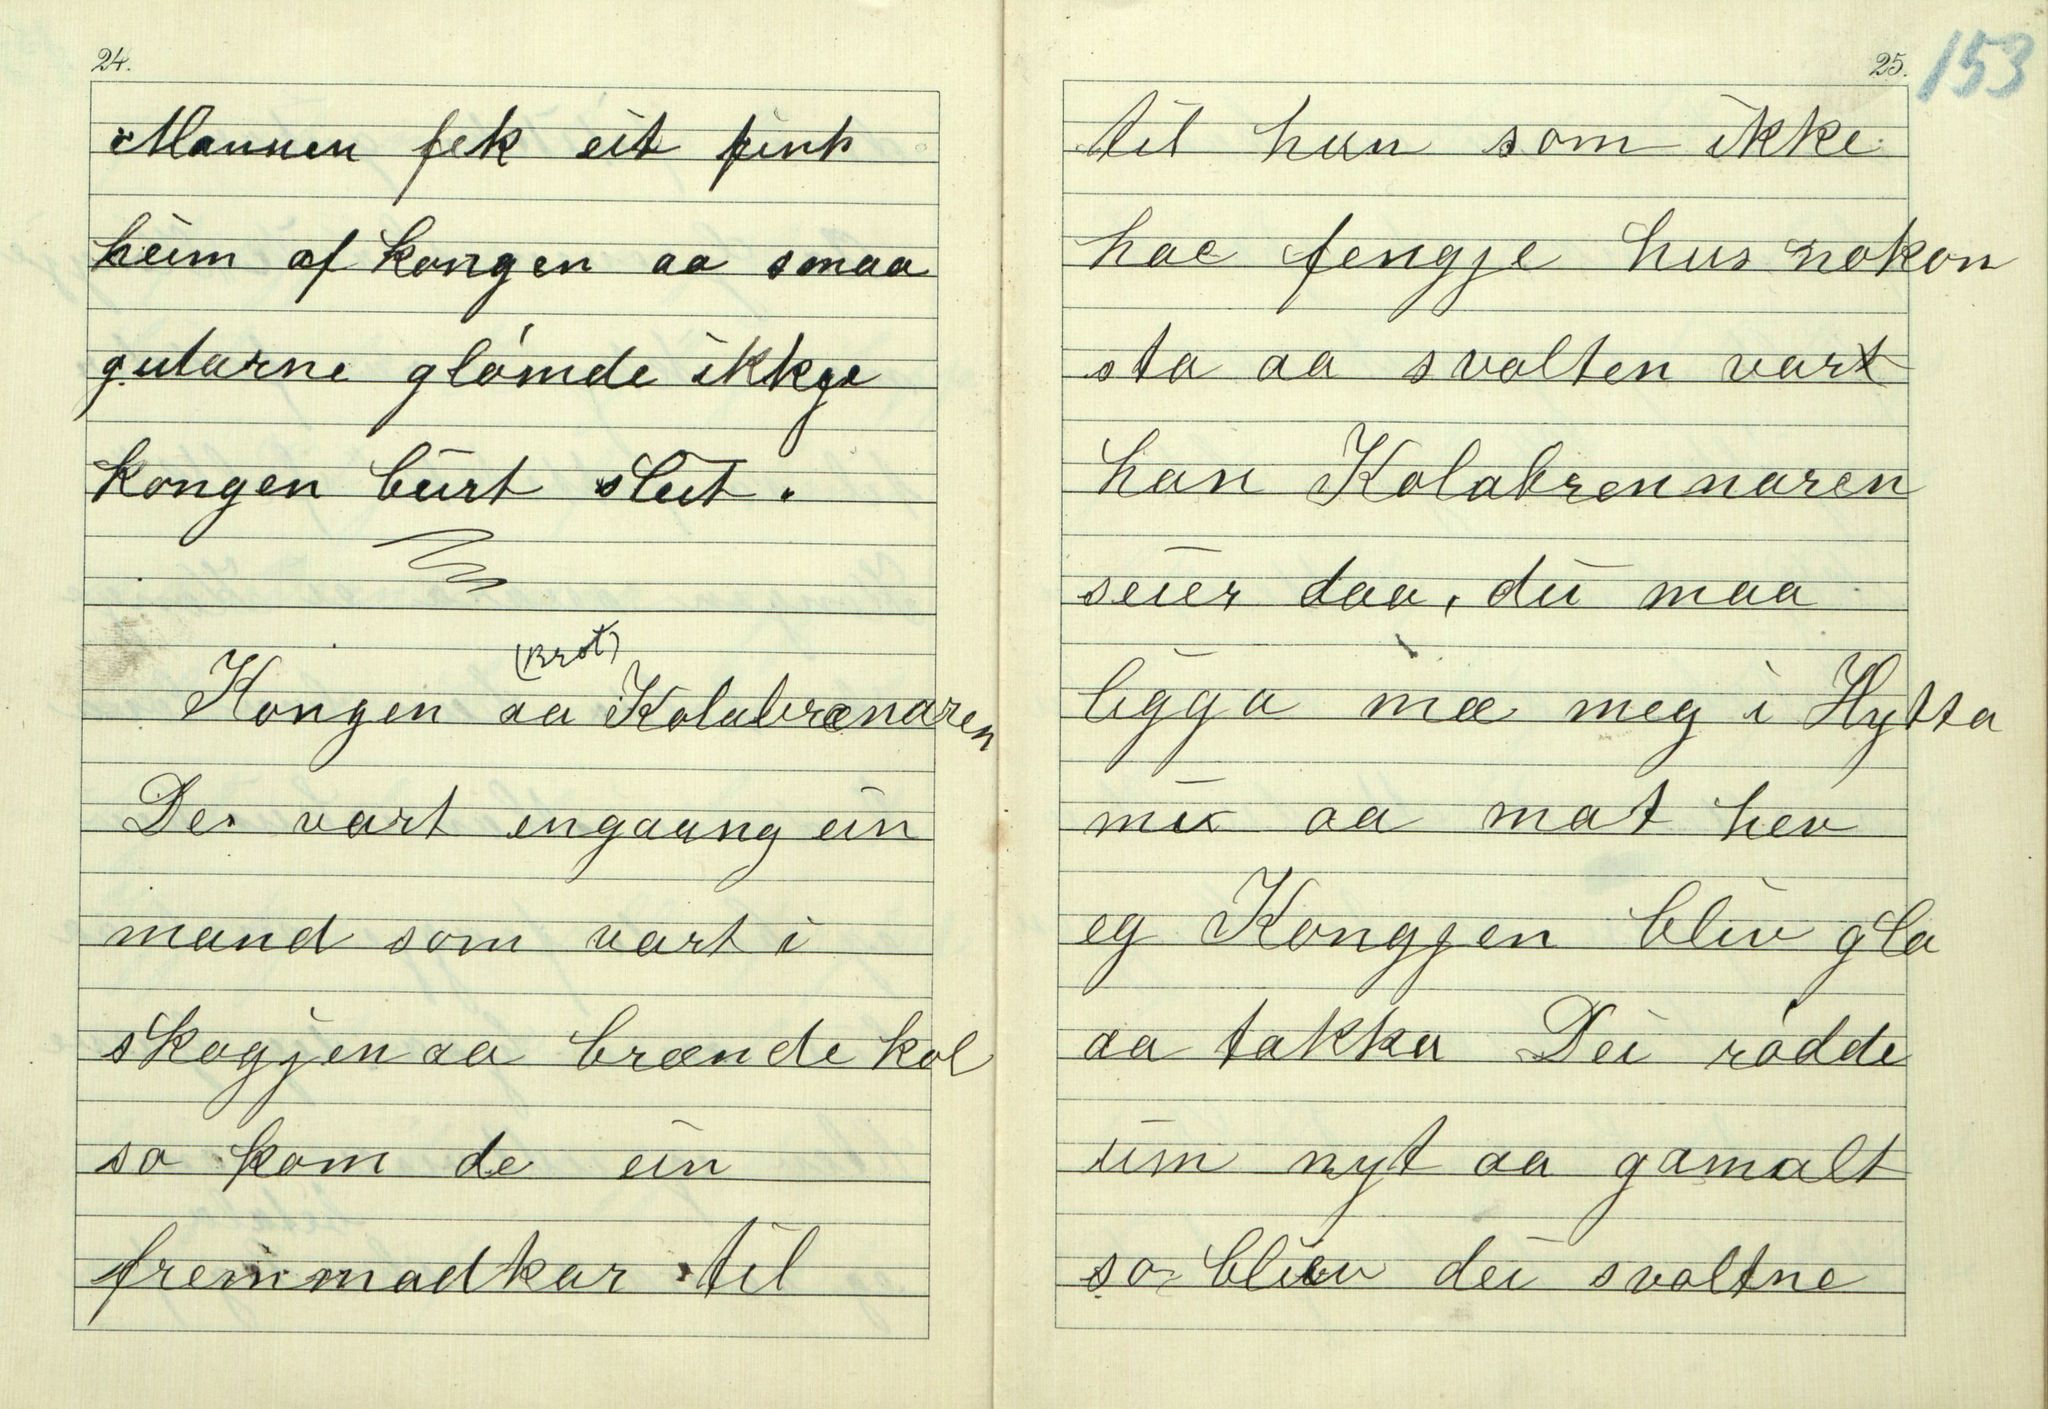 24.
Mannen fek eit fint
heim af kongen aa smaa
gutarne glømde ikkge
kongen burt slut.
(Brot)
Kongen aa Kolabrænaren
De. vart engaang ein
mand som vart i
skogjen aa brænde kol
so kom de ein
fremmadkar til
25.
153
til han som ikke
hae fengje hus nokon
sta aa svolten vart
han Kolabrennaren
seier daa, du maa
ligga mæ meg i Hytta
mi aa mat hev
eg Kongjen bliv gla
aa takka Dei rødde
um nyt aa gamalt
so bliev dei svoltne